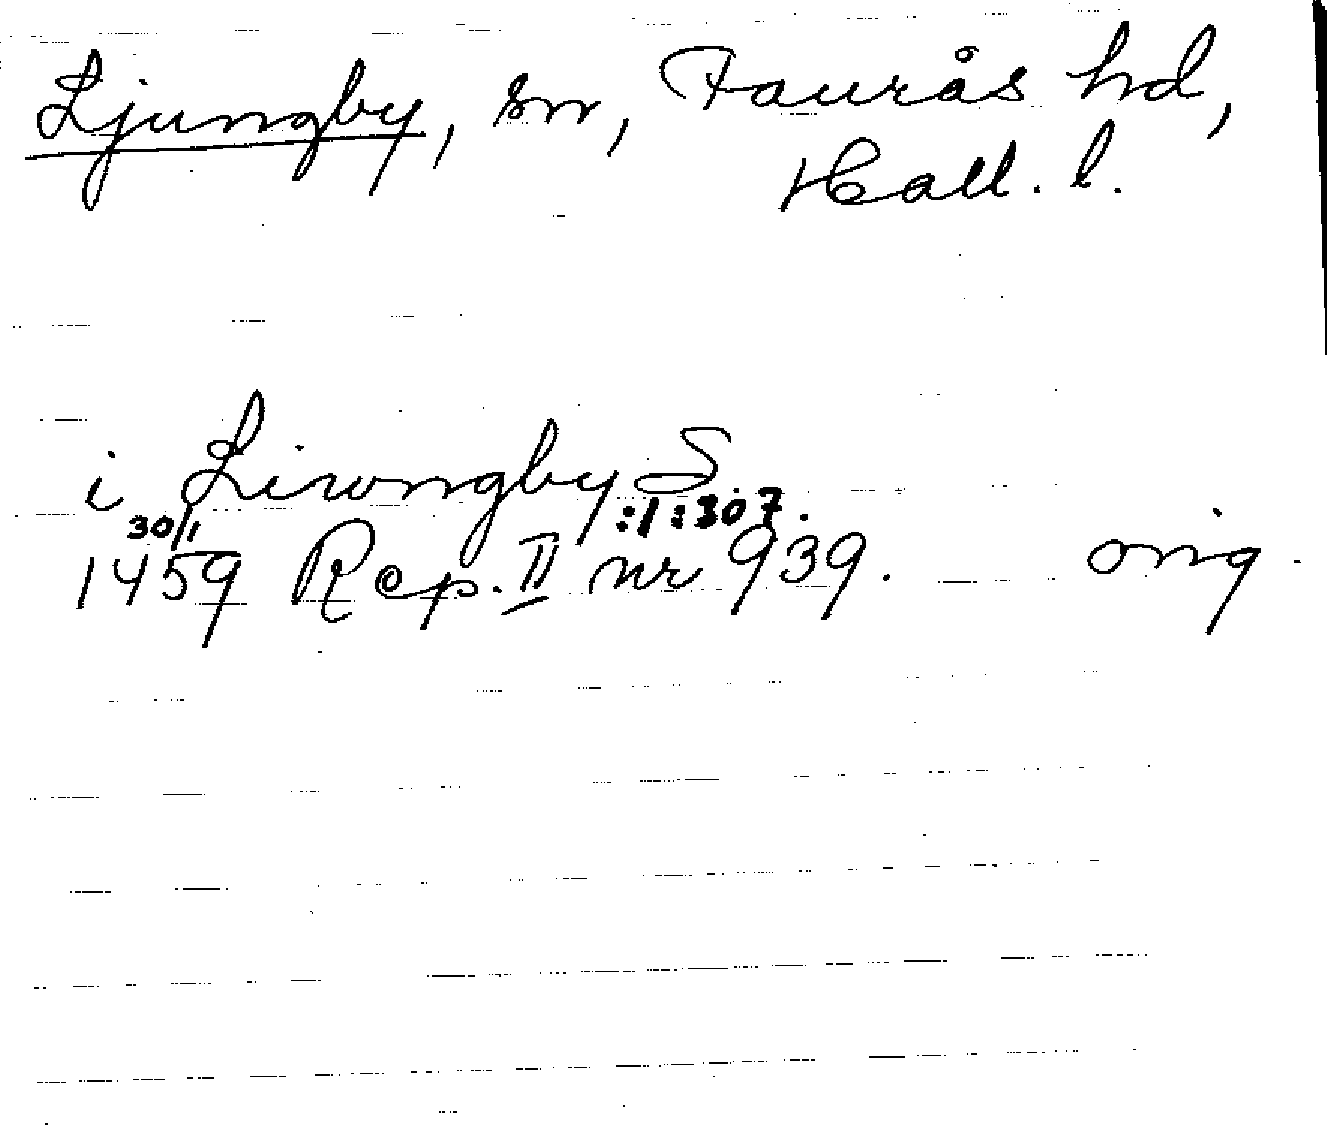 Ljungby, sn, Faurås hd,
Hall. l.
i Liwngby S.
:1:307.
30/1
1459 Rep. II nr 939. orig.